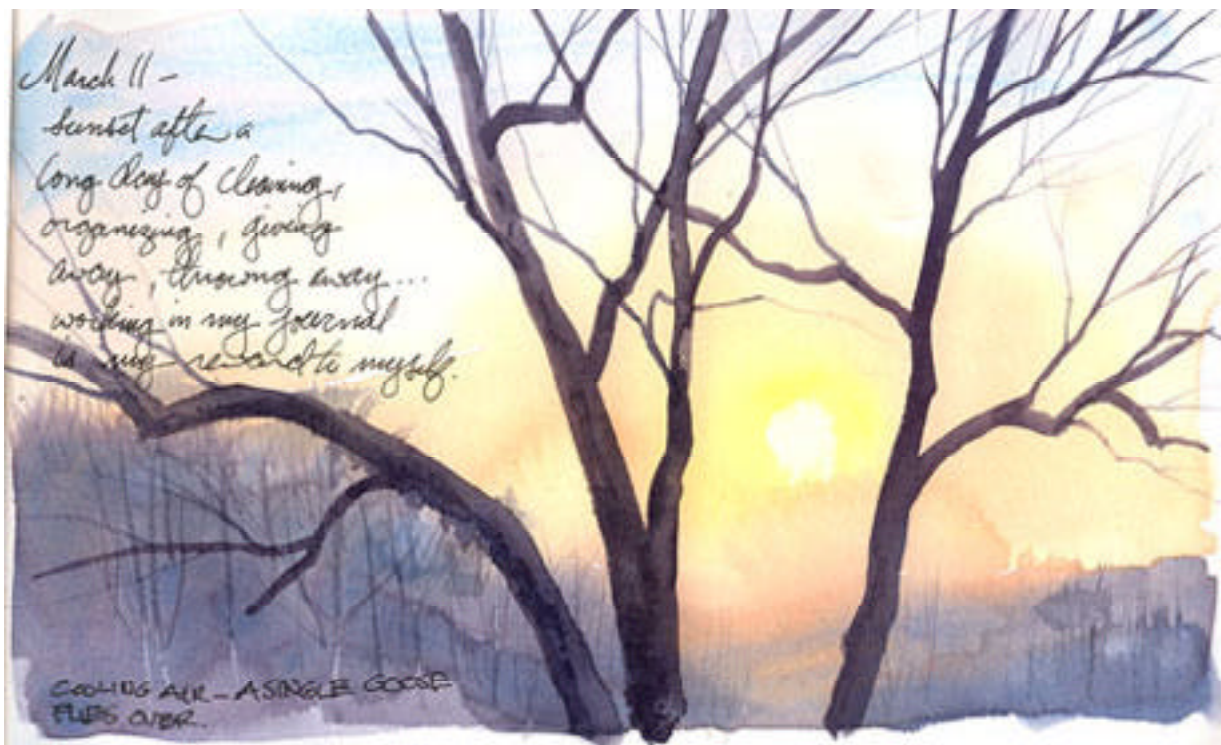 March 11 –
Sunset after a
long day of cleaning,
organizing, giving
away, throwing away...
working in my journal
is my reward to myself.
COOLING AIR – A SINGLE GOOSE
FLIES OVER.